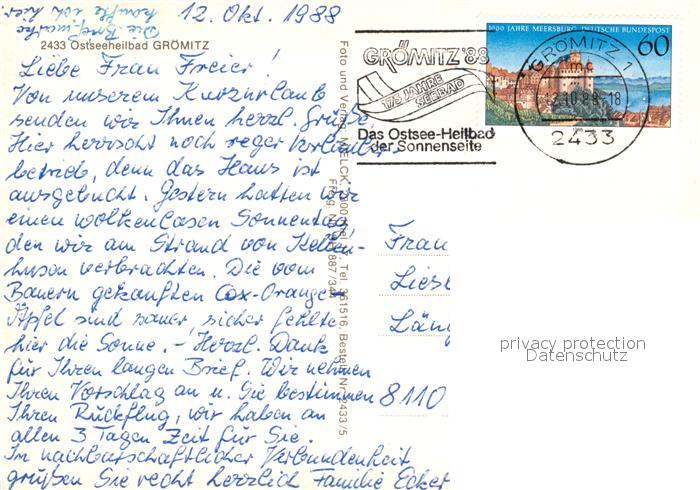 Die Briefmarke
kaufte ich hier.
12. Okt. 1988
2433 Ostseeheilbad GRÖMITZ
Liebe Frau Freier!
Von unserem Kurzurlaub
senden wir Ihnen herzl. Grüße
Hier herrscht noch reger Verlauber-
betrieb, denn das Haus ist
ausgebucht. Gestern hatten wir
einen wolkenlosen Sonnentag,
den wir am Strand von Kellen-
husen verbrachten. Die vom
Bauern gekauften Cox-Orange-
Äpfel sind sauer, sicher fehlte
hier die Sonne. - Herzl. Dank
für Ihren langen Brief. Wir nehmen
Ihren Vorschlag an u. Sie bestimmen
Ihren Rückflug, wir haben an
allen 3 Tagen Zeit für Sie.
In nachbarschaftlicher Verbundenheit
grüßen Sie recht herzlich Familie Ecker
Foto und Verlag: MIELCK, Tel. 361516, Bestell-Nr. 2433/5
GRÖMITZ '88
175 JAHRE
SEEBAD
Das Ostsee-Heilbad
der Sonnenseite
1000 JAHRE MEERSBURG DEUTSCHE BUNDESPOST
60
GRÖMITZ 1
mc
.10.88-18
2433
Frau
Liese
Läng
8110
privacy protection
Datenschutz